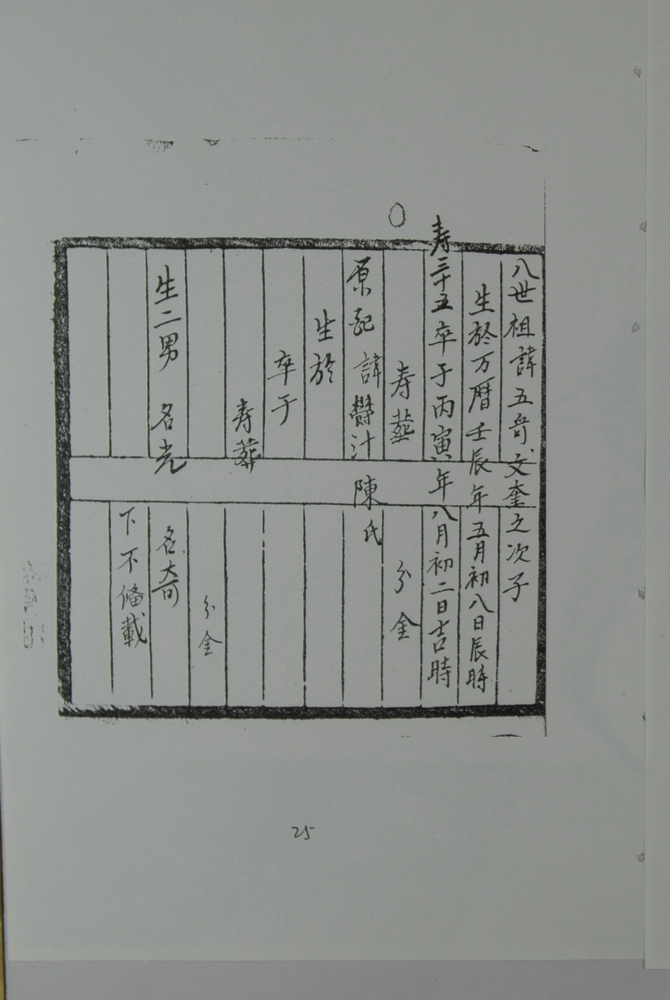 八世祖諱五奇文奎之次子
生於万曆壬辰年五月初八日辰時
寿三十五卒于丙寅年八月初二日吉時
寿葬 分金
原配 諱 汁 陳氏
生於
卒于
寿葬
分金
生二男 名光 名奇
下不俻載
25